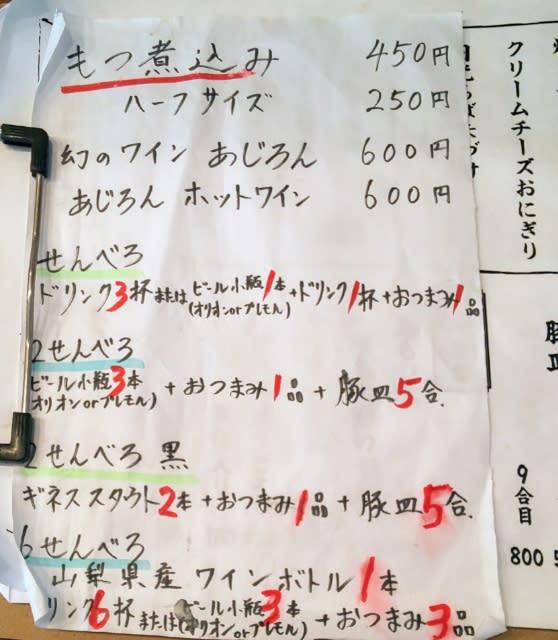 もつ煮込み 450円
ハーフサイズ 250円
幻のワイン あじろん 600円
あじろん ホットワイン 600円
せんべろ
ドリンク3杯 または ビール小瓶1本 (オリオンorプレモル) +ドリンク1杯+おつまみ1品
2せんべろ
ビール小瓶3本 オリオンorプレモル) +おつまみ1品+豚皿5合.
2せんべろ 黒
ギネススタウト2本+おつまみ1品+豚皿5合.
6せんべろ
山梨県産ワインボトル1本
リンク6杯 または ビール小瓶3本 (オリオンorプレモル) +おつまみ3品
クリームチーズおにぎり
豚皿
9合目
800